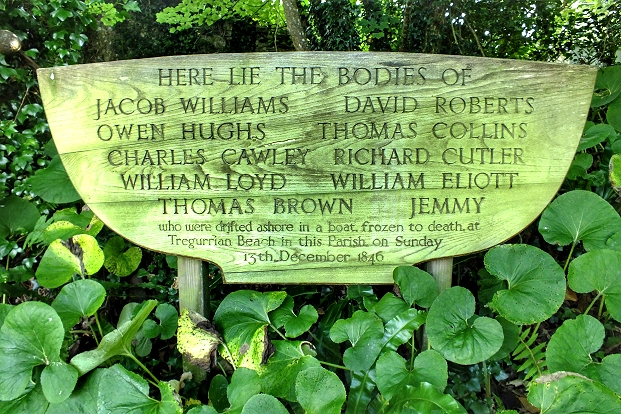 HERE LIE THE BODIES OF
JACOB WILLIAMS DAVID ROBERTS
OWEN HUGHS THOMAS COLLINS
CHARLES CAWLEY RICHARD CUTLER
WILLIAM LOYD WILLIAM ELIOTT
THOMAS BROWN JEMMY
who were drifted ashore in a boat, frozen to death, at
Tregurrian Beach in this Parish, on Sunday
13th December 1846